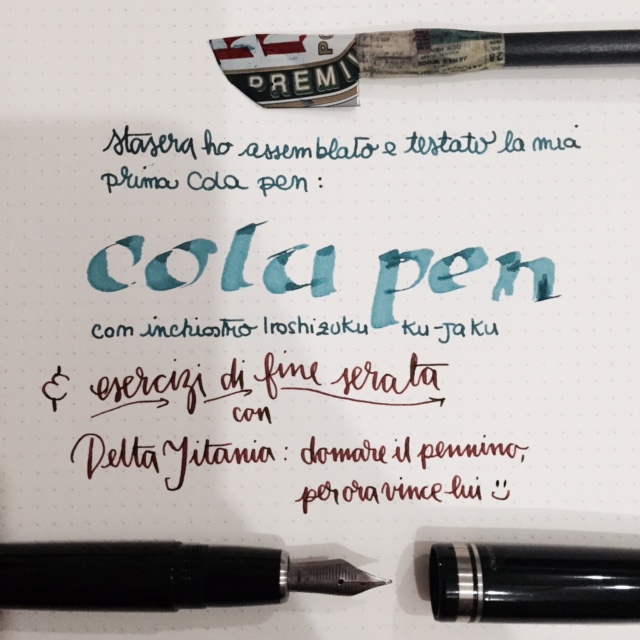 PREMI
stasera ho assemblato e testato la mia
prima Cola pen :
cola pen
con inchiostro Iroshizuku ku-jaku
& esercizi di fine serata
con
Delta Titania : domare il pennino,
per ora vince lui :)